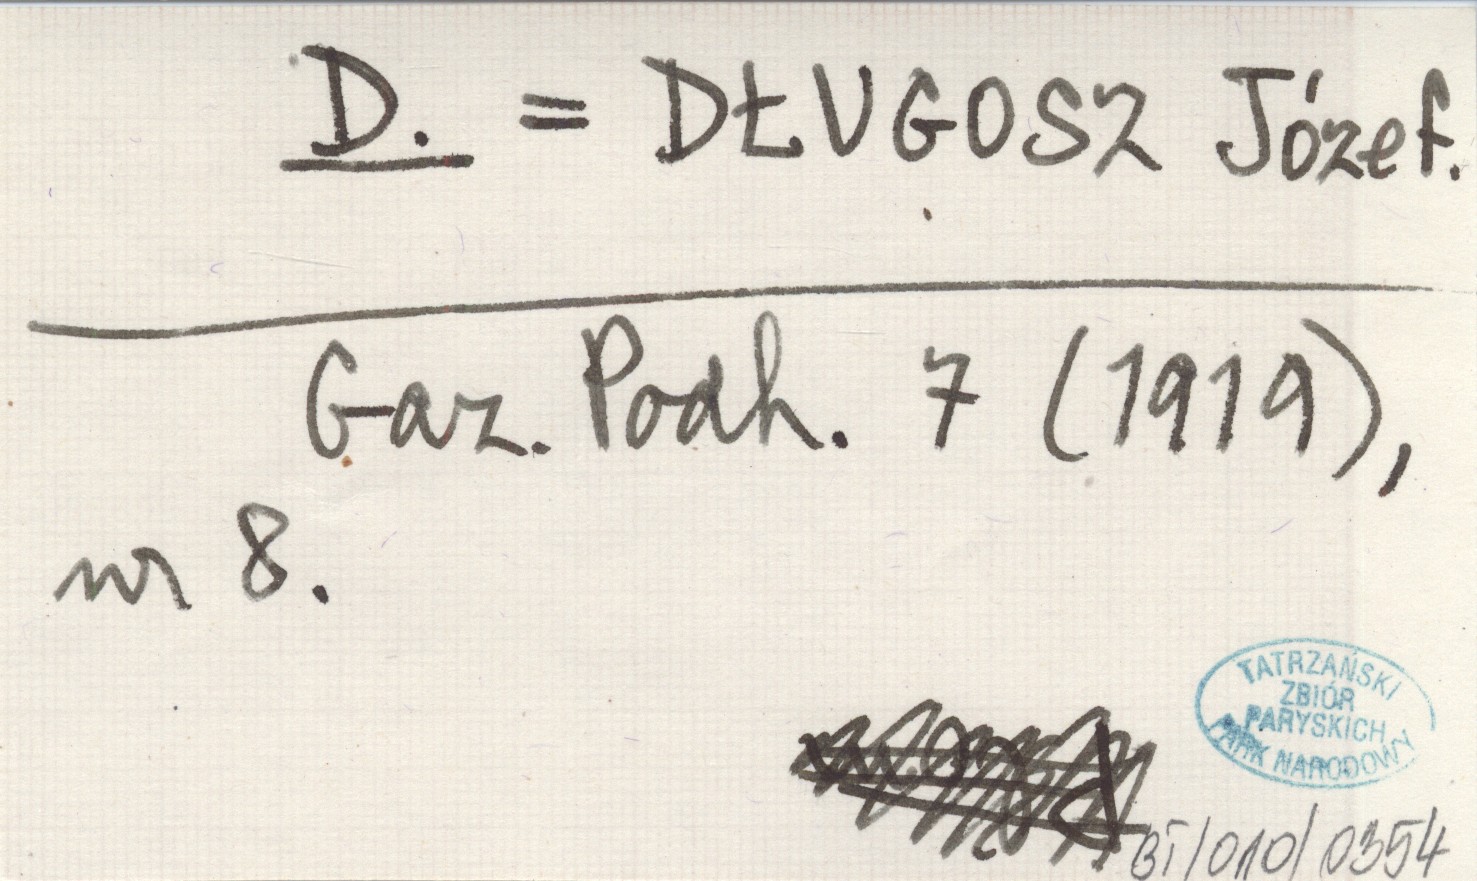 D. = DŁUGOSZ Józef.
Gaz. Podh. 7 (1919),
nr 8.
TATRZAŃSKI
ZBIÓR
PARYSKICH
PARK NARODOWY
BT/010/0354